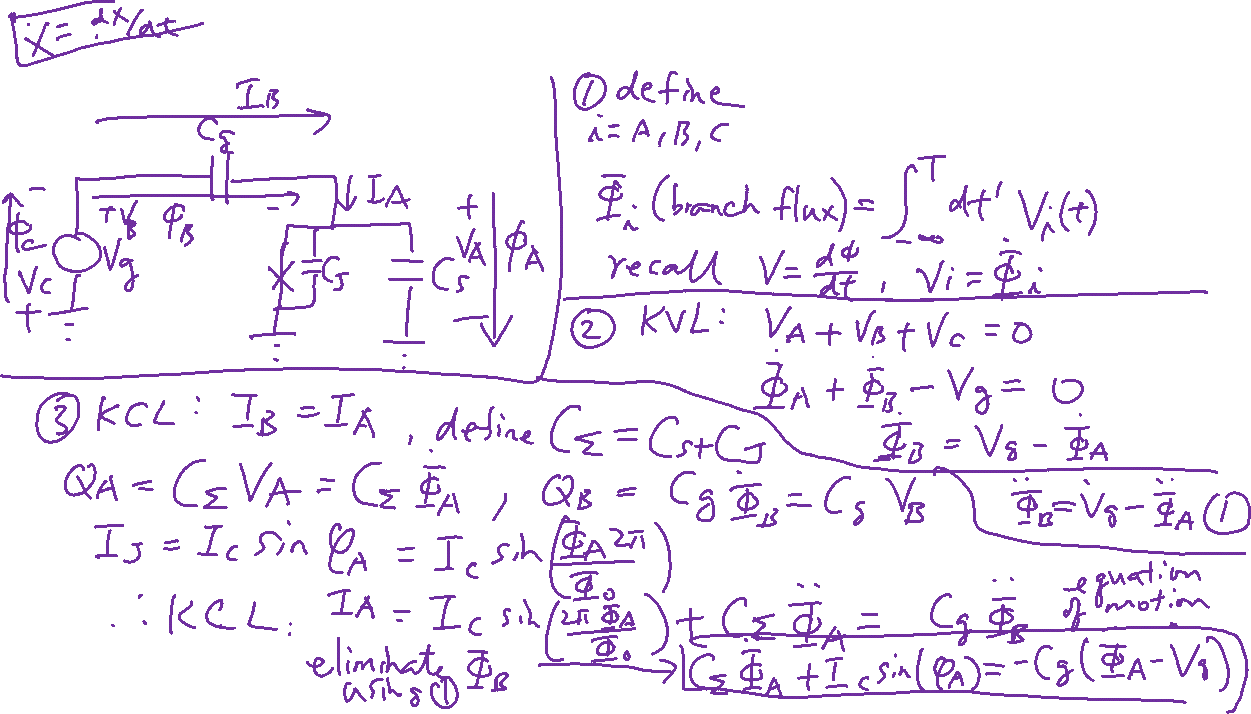 Ẋ = dX/dt
I_B
C_g
I_A
- + V_B Φ_B -
Φ_C V_g
V_C
+
C_J C_S
+ V_A Φ_A
-
① define
i = A, B, C
Φ_i (branch flux) = ∫_{-∞}^{T} dt' V_i(t)
recall V = dΦ/dt, V_i = Φ̇_i
② KVL: V_A + V_B + V_C = 0
Φ̇_A + Φ̇_B - V_g = 0
Φ̇_B = V_g - Φ̇_A
Φ̈_B = V̇_g - Φ̈_A ①
③ KCL: I_B = I_A, define C_Σ = C_S + C_J
Q_A = C_Σ V_A = C_Σ Φ̇_A, Q_B = C_g Φ̇_B = C_g V_B
I_J = I_C sin φ_A = I_C sin(Φ_A 2π / Φ_0)
∴ KCL: I_A = I_C sin(2π Φ_A / Φ_0) + C_Σ Φ̈_A = C_g Φ̈_B
equation
of motion
eliminate Φ_B
using ①
→ C_Σ Φ̈_A + I_C sin(φ_A) = -C_g(Φ̈_A - V̇_g)